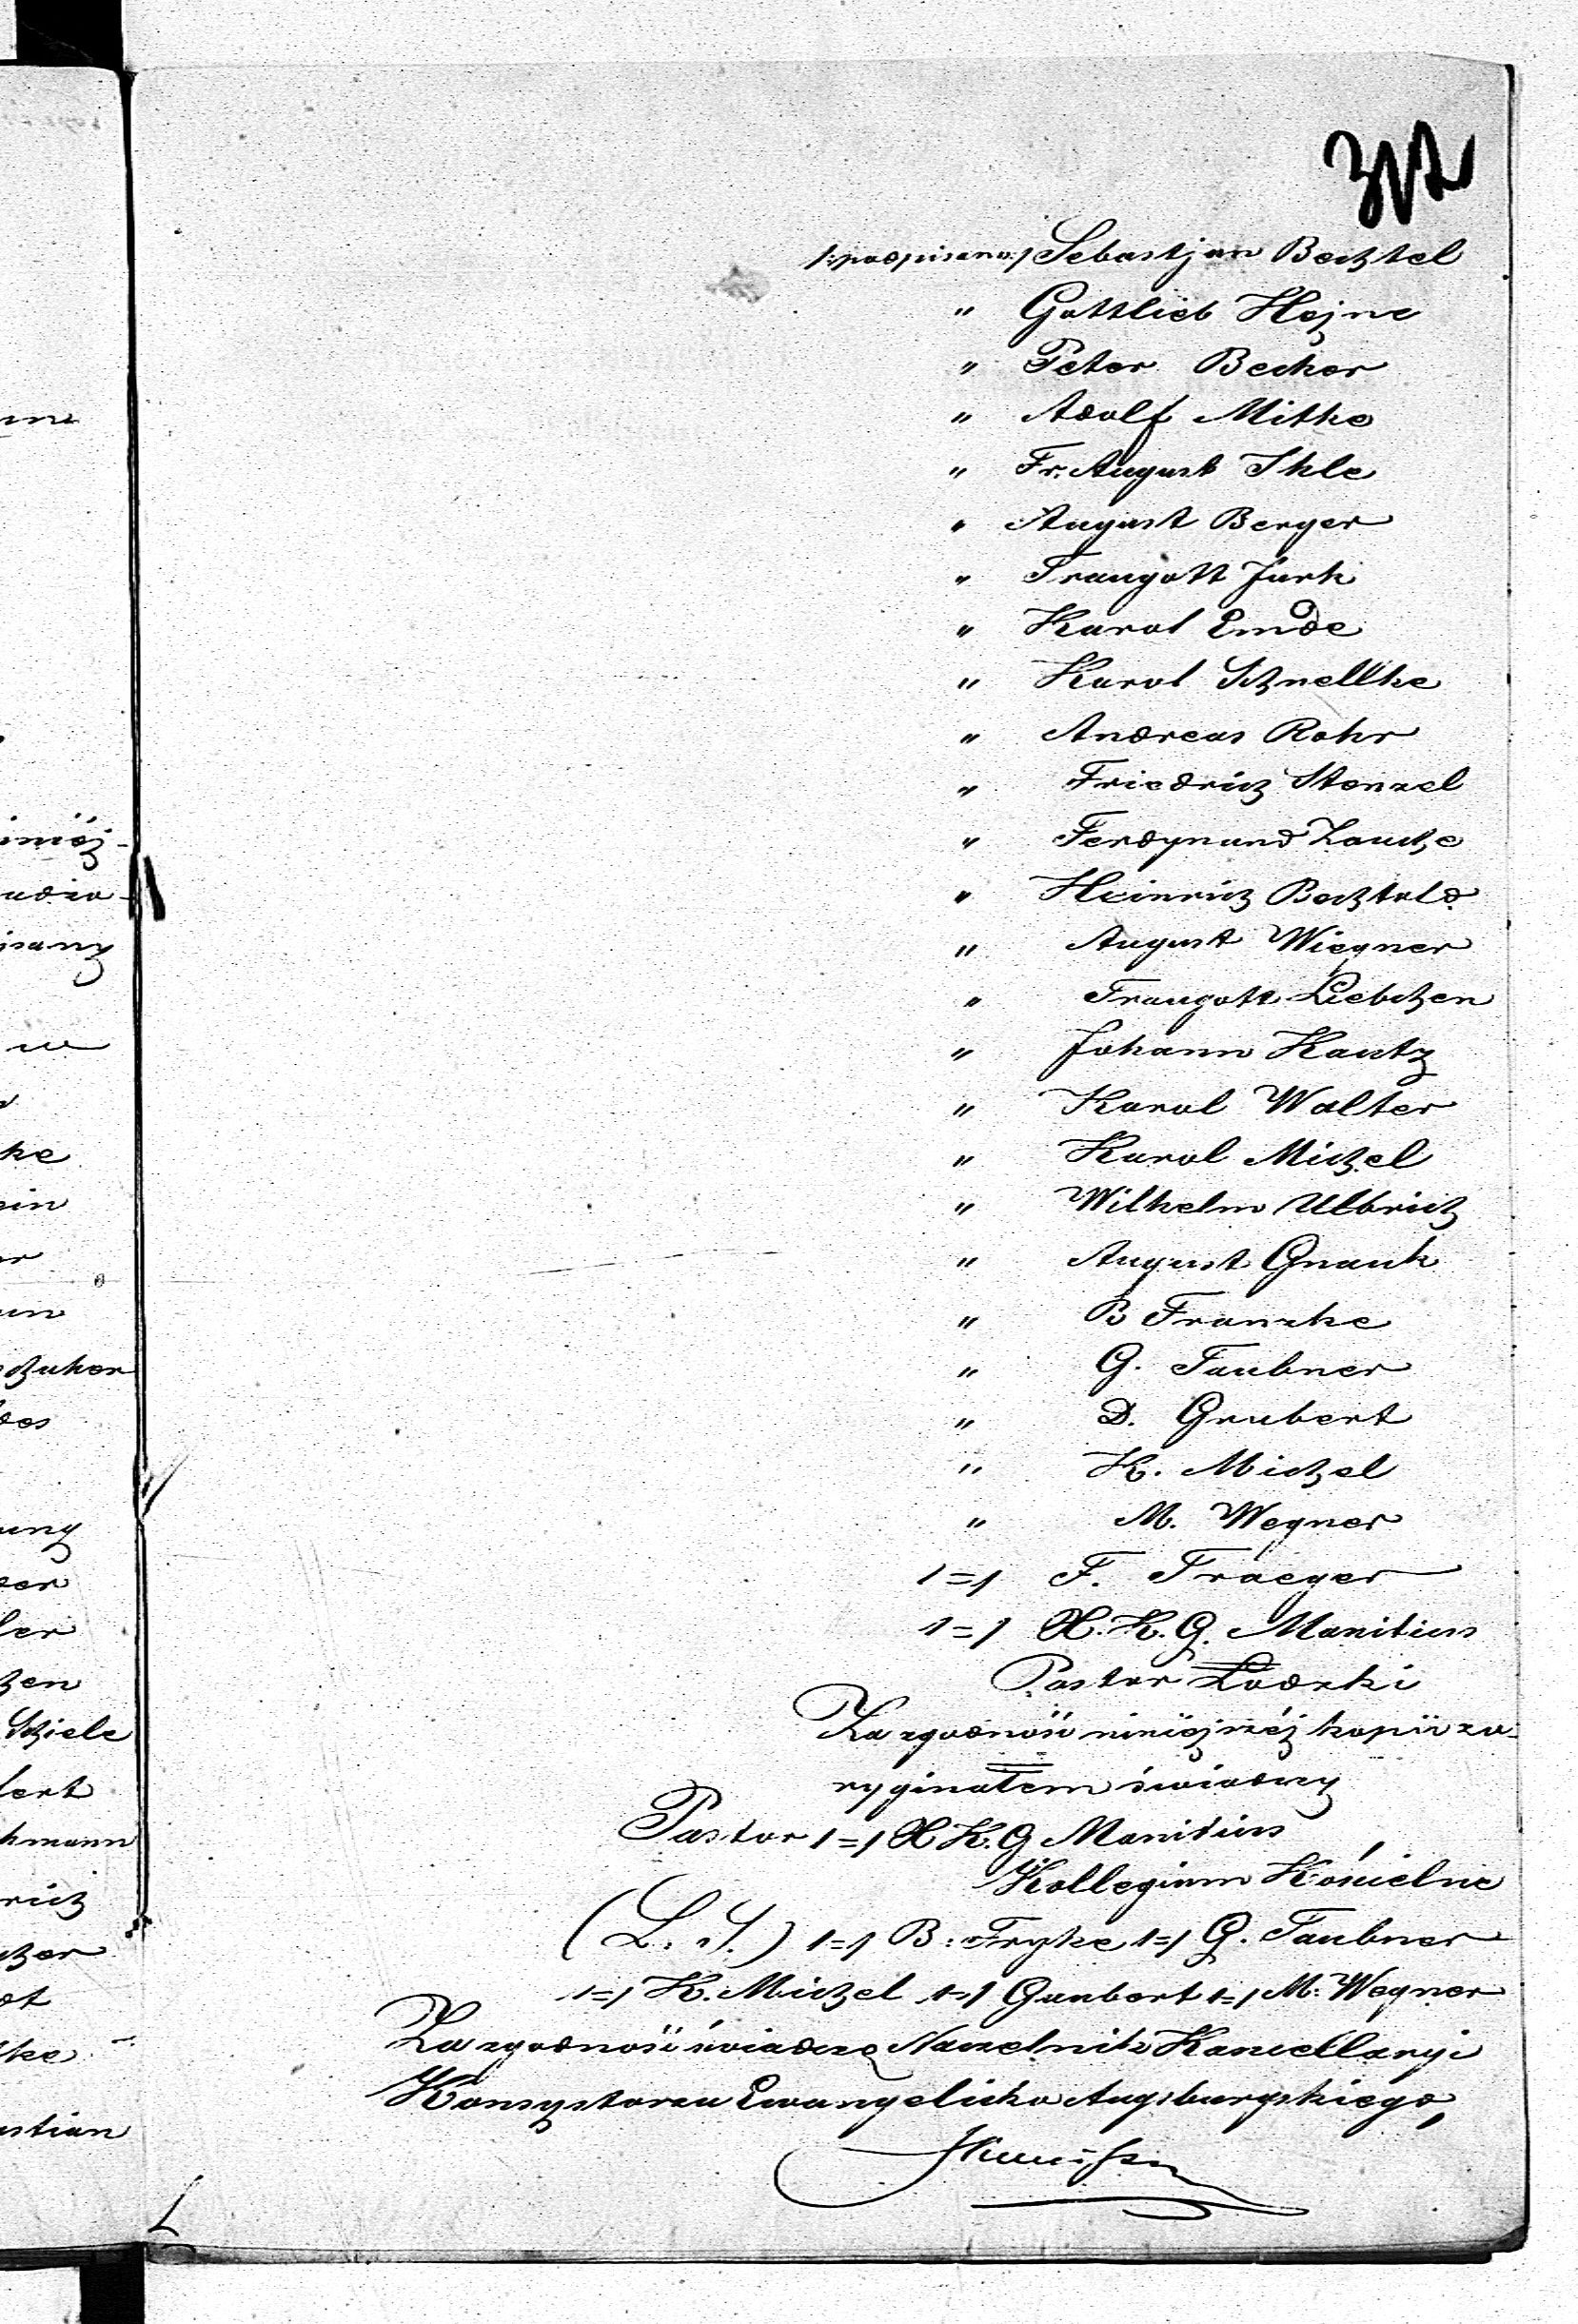 /:podpisano:/ Sebastjan Bechtel
" Gottlieb Hejne
" Peter Becker
" Adolf Mitke
" Fr. August Ihle
" August Berger
" Traugott Jurk
" Karol Emde
" Karol Schnellke
" Andreas Rohr
" Friedrich Stenzel
" Ferdynand Lauche
" Heinrich Bechtold
" August Wiegner
" Traugott Liebchen
" Johann Kautz
" Karol Walter
" Karol Michel
" Wilhelm Ulbrich
" August Gnauk
" B Franzke
" G. Taubner
" D. Grubert
" K. Michel
" M. Wegner
/=/ F. Traeger
/=/ X. K. G. Manitius
Pastor Łodzki
Za zgodność niniejszéj kopii z o-
ryginałem świadczy
Pastor /=/ X K. G Manitius
Kollegium Kościelne
(L. S.) /=/ B: Fryke /=/ G. Taubner
/=/ K. Michel /=/ Gunbert /=/ M: Wegner
Za zgodność świadczę Naczelnik Kancellaryi
Konsystorza Ewangelicko Augsburgskiego
ine
iniéj-
udzo-
isany
w
ke
ein
er
un
ung
ler
Schiele
bert
hmann
rich
ke
astian